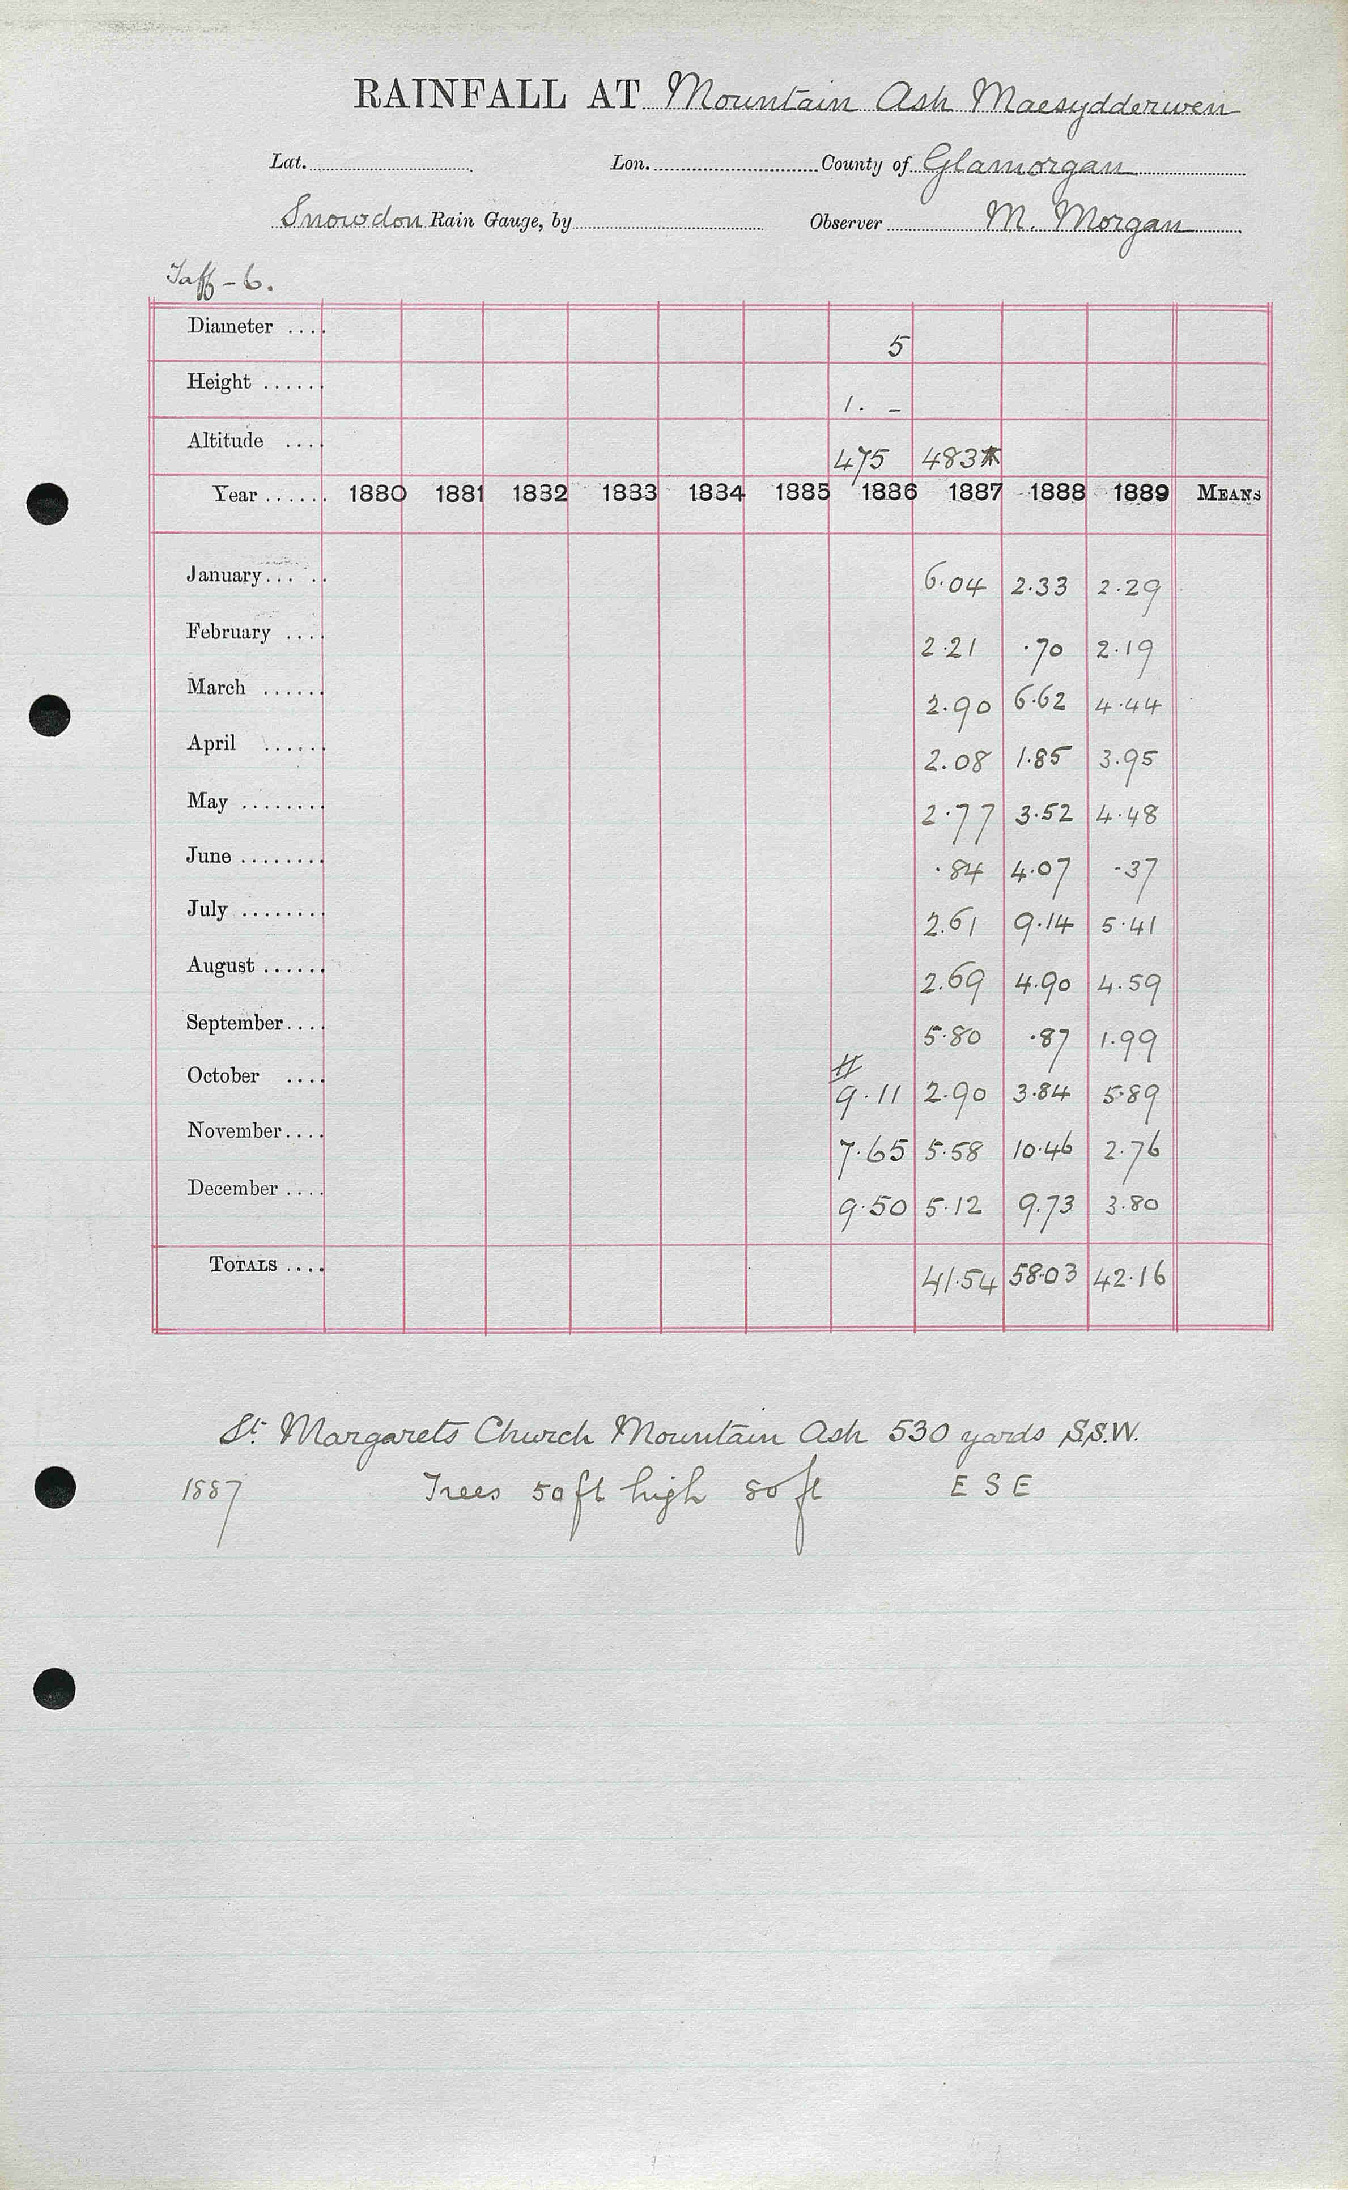 RAINFALL AT Mountain Ash Maesydderwen
Lat. Lon. County of Glamorgan
Snowdon Rain Gauge, by Observer M. Morgan
Taff - 6.
Diameter .... 5
Height ...... 1. -
Altitude .... 475 483
Year ...... 1880 1881 1882 1883 1884 1885 1886 1887 1888 1889 MEANS
January..... 6.04 2.33 2.29
February .... 2.21 .70 2.19
March ...... 2.90 6.62 4.44
April ...... 2.08 1.85 3.95
May ........ 2.77 3.52 4.48
June ........ .84 4.07 .37
July ........ 2.61 9.14 5.41
August ...... 2.69 4.90 4.59
September.... 5.80 .87 1.99
October .... # 9.11 2.90 3.84 5.89
November.... 7.65 5.58 10.46 2.76
December .... 9.50 5.12 9.73 3.80
TOTALS .... 41.54 58.03 42.16
St. Margarets Church Mountain Ash 530 yards S.S.W.
1887 Trees 50 ft high 80 ft E S E